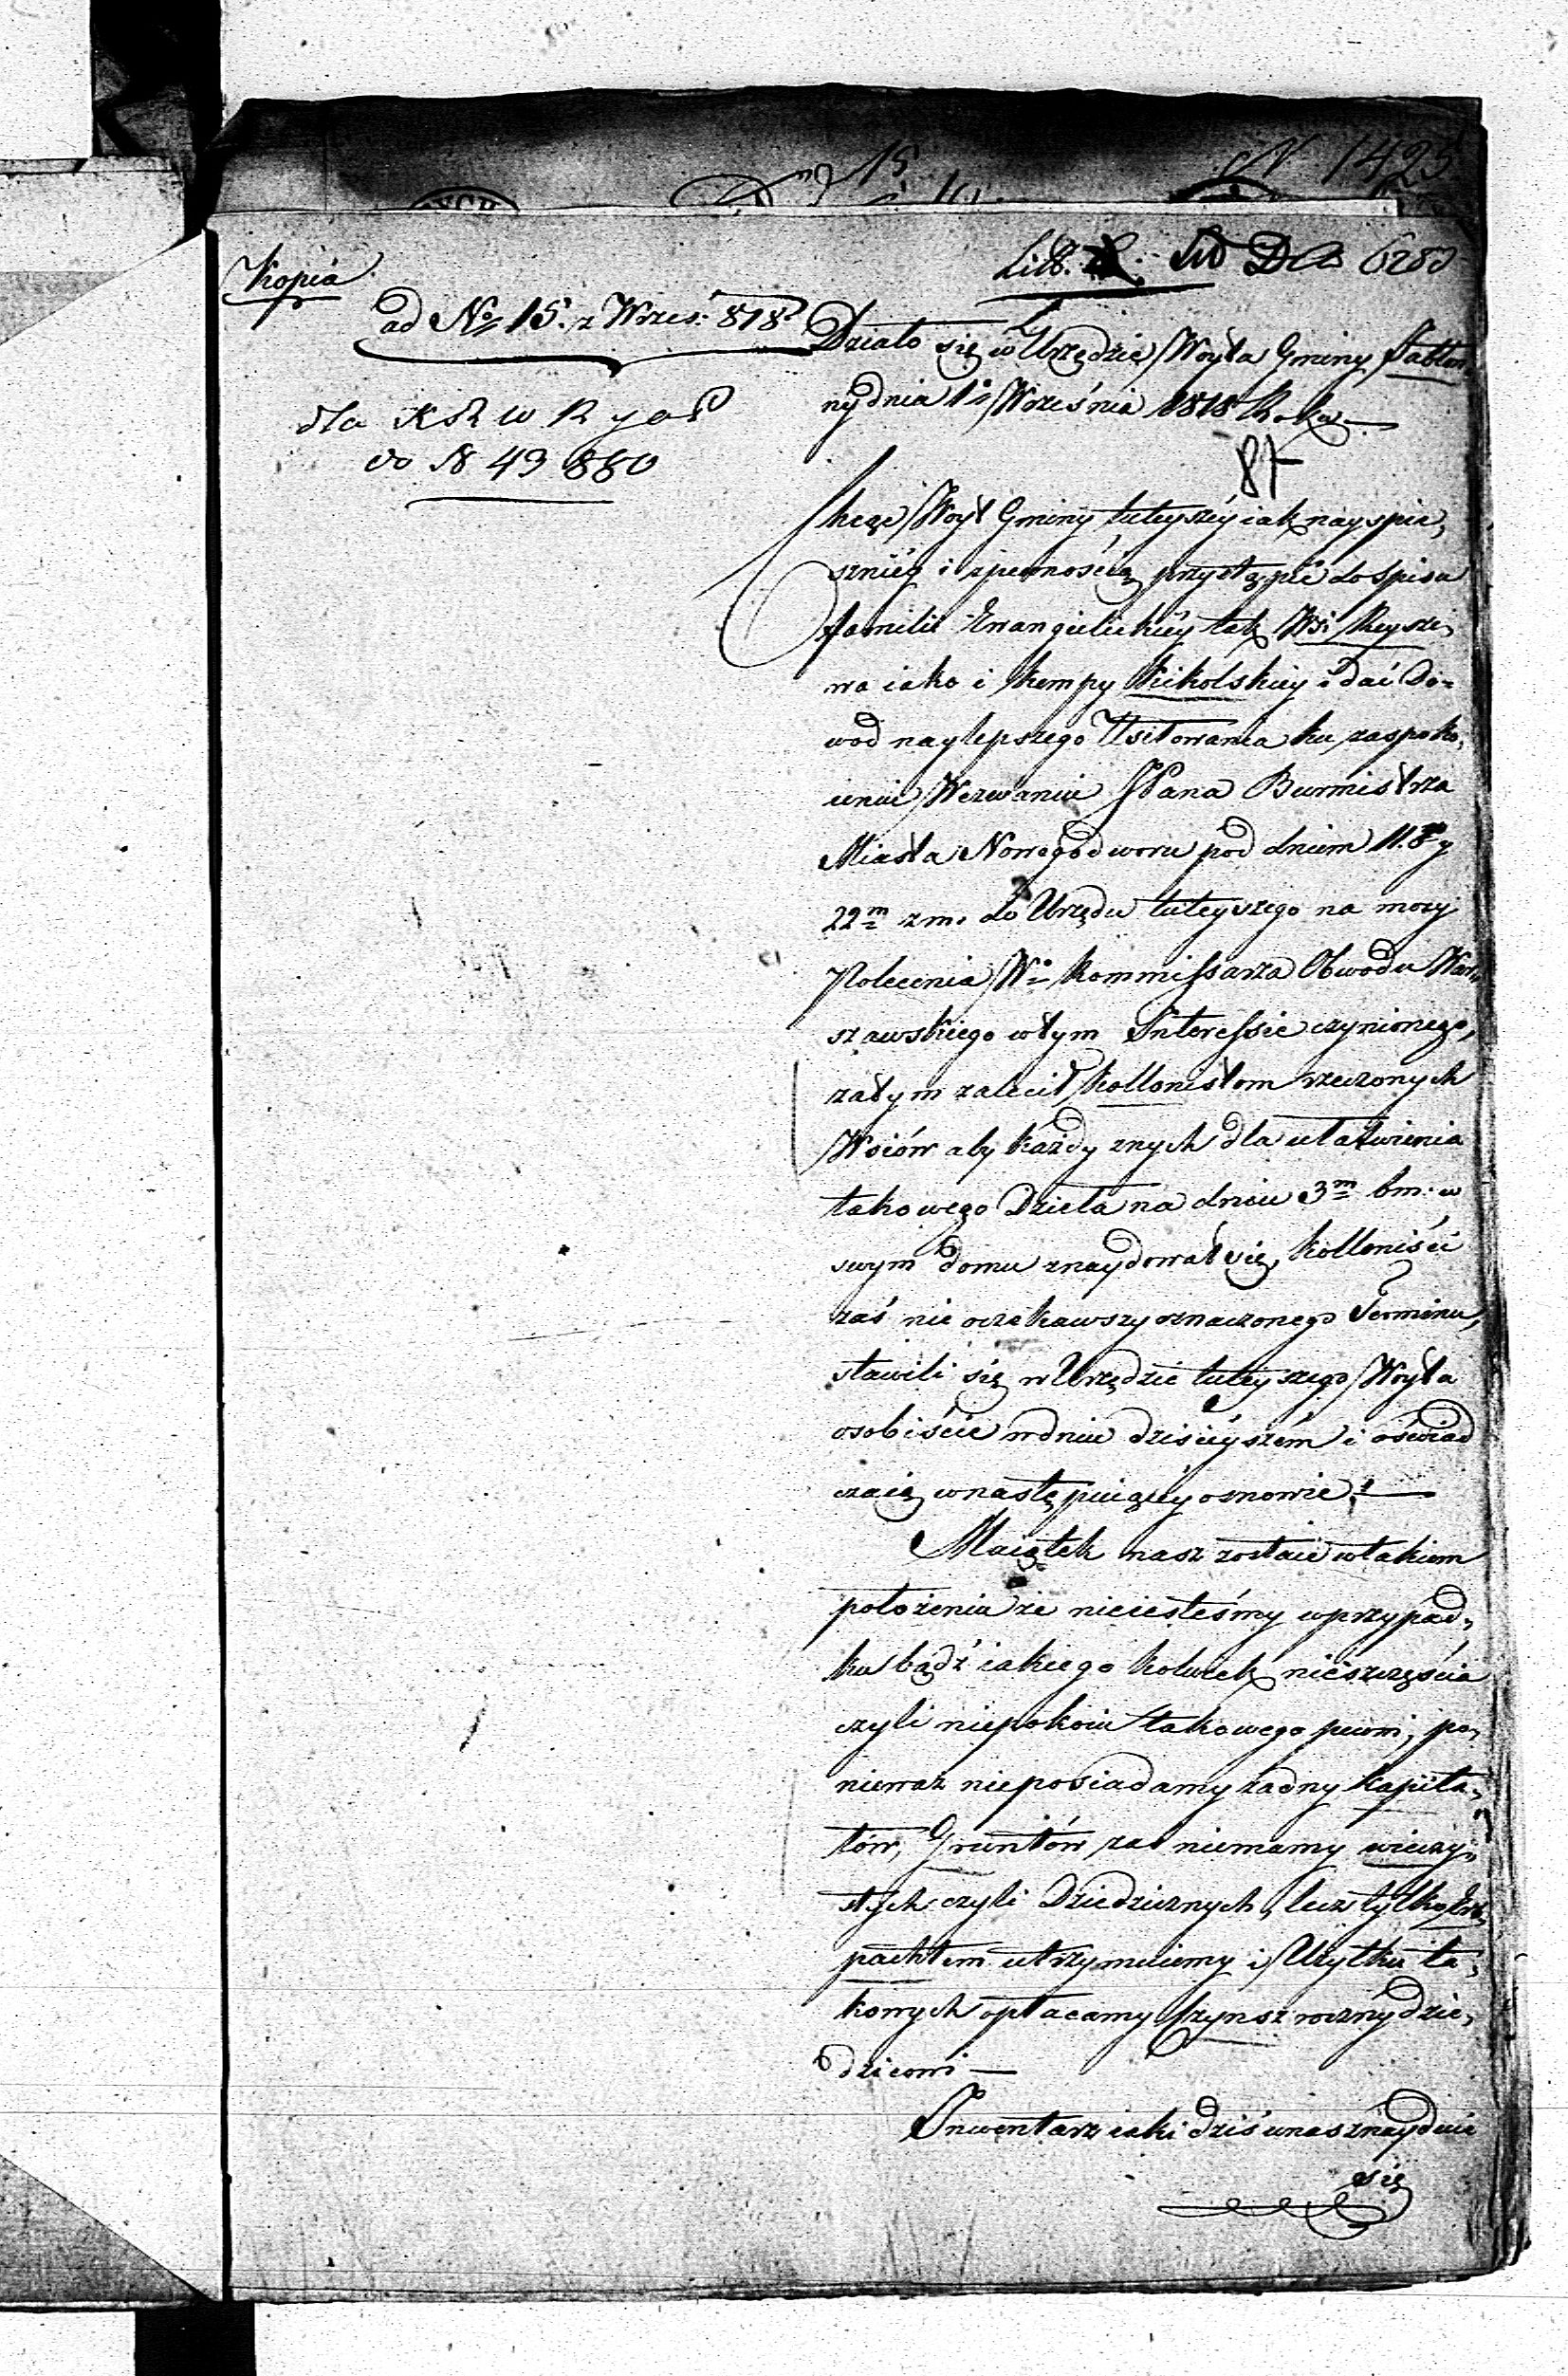 15
N 1425
Kopia
Litt.
ad No 15. z Wrześ: 818
Działo się w Urzędzie Woyta Gminy Jabłon
ny dnia 1o Września 1818 Roku
dla
do N 49880
87
Chcąc Woyt Gminy tuteyszéy iak nayspie,
szniéy i zpewnością przystąpić do Spisu
familii Ewangielickiéy tak Wsi Reysze,
wa iako i Kempy Kikolskiey i dać Do=
wod naylepszego Usiłowania ku zaspoko,
ieniu Wezwaniu JPana Burmistrza
Miasta Nowegodworu pod dniem 11. 8 y
22m zm. do Urzędu tuteyszego na mocy
Polecenia Wo Kommissarza Obwodu War,
szawskiego wtym Interessie czynionego,
zatym zalecił Kollonistom rzeczonych
Wsiów aby każdy znych dla ułatwienia
takowego Dzieła na dniu 3m bm. w
swym domu znaydował się, Kolloniści
zaś nie oczekawszy oznaczonego Terminu,
stawili się w Urzędzie tuteyszego Woyta
osobiście wdniu dzisieyszém i oświad
czaią wnastępuiącéy osnowie:
Maiątek nasz zostaie wtakiem
położeniu że nieiesteśmy wprzypad,
ku bądź iakiego kolwiek nieszczęścia
czyli niepokoiu takowego pewni, po,
nieważ nieposiadamy żadny Kapita,
łów, Gruntów zaś niemamy wieczy,
stych czyli Dziedzicznych, lecz tylko
pachtem utrzymuiemy i Użytku ta,
kowych opłacamy Czynsz roczny dzie,
dzicowi
Inwentarz iaki dziś unas znayduie
się